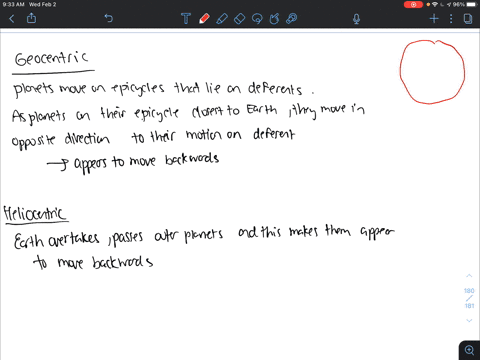 9:33 AM Wed Feb 2
96%
Geocentric
planets move on epicycles that lie on deferents.
As planets on their epicycle closest to Earth, they move in
opposite direction to their motion on deferent
→ appears to move backwords
Heliocentric
Earth overtakes, passes outer planets and this makes them appear
to move backwords
180
/
181